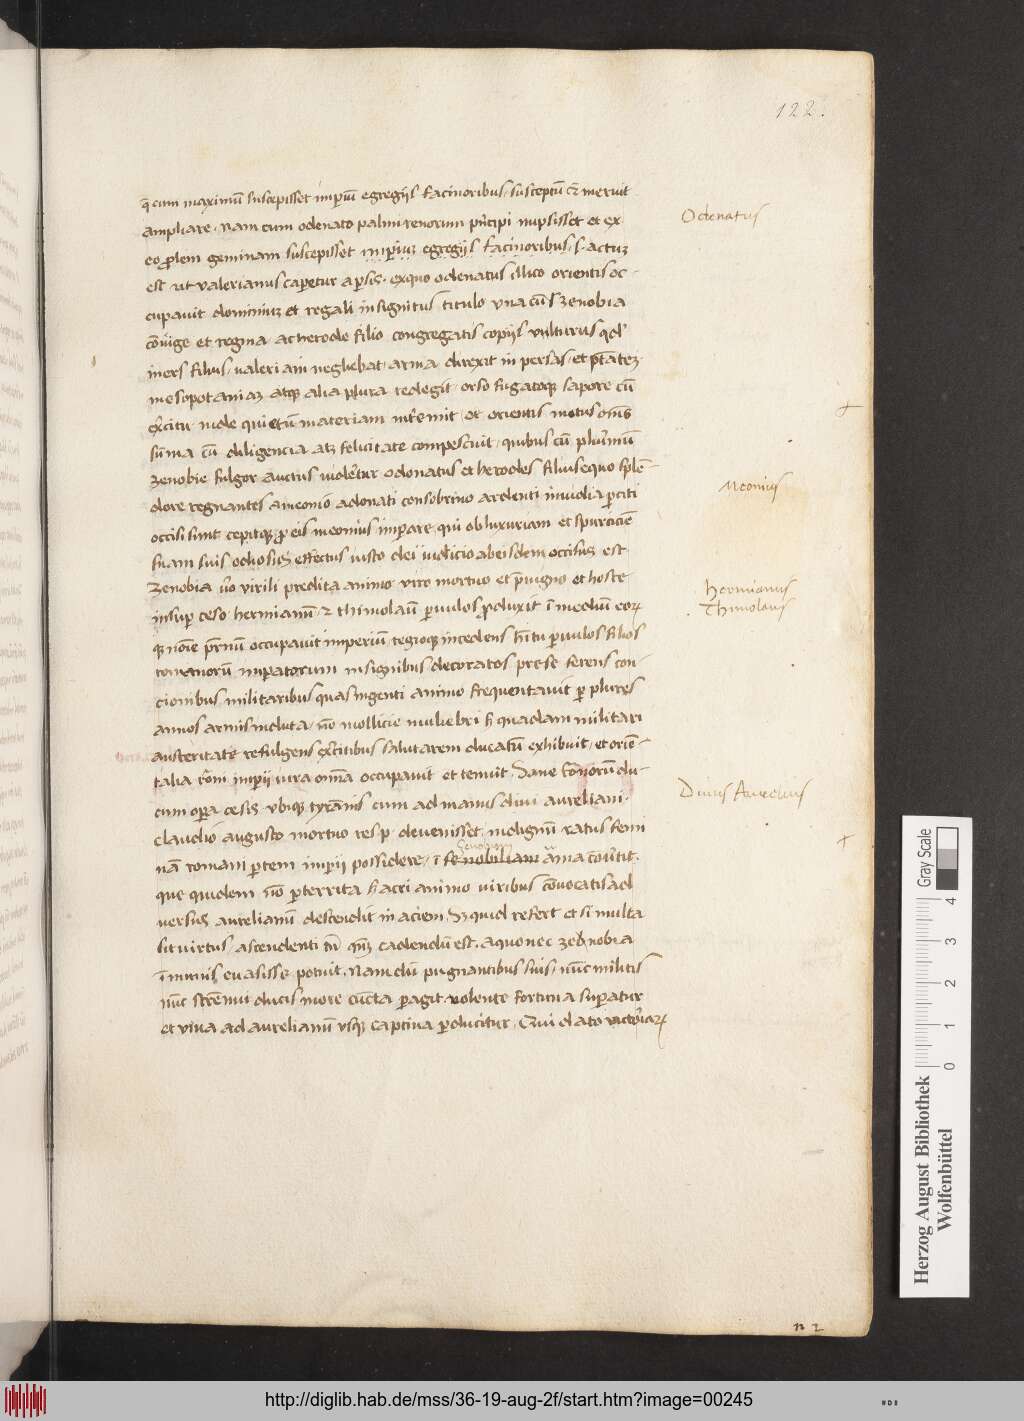 122.
q̄ cum maximū suscepisset imperiū egregijs facinoribus, susceptū & meruit
ampliare. Nam cum odenato palmirenorum prīcipi nupsisset et ex
eo prolem geminam suscepisset imperiuz egregijs facinoribus, factuz
est ut valerianus caperetur a persis. exquo odenatus illico orientis oc-
cupavit dominiuz et regali insignitus titulo una cū Zenobia
cōiuge et regina, ac herode filio congregatis copijs vulturus qđ
iners filius, valeriani negliebat, arma direxit in persas, et
mesopotamiaz atque alia plura redegit. fugatoque sapore cū
inde materiam et orientis motus oms
sūma cū diligencia atque felicitate compescuit. quibus cū plurimū
Zenobie fulgor auctus videretur odonatus et herodes filius equo splē-
dore regnantes a meonio adonati consobrino ardenti invidia perciti
occisi sunt. cepitque pro eis meonius imperare. qui ob luxuriam et spurciciē
suam suis odiosus effectus iusto dei iudicio ab eisdem occisus est.
Zenobia vero virili predita animo viro mortuo et privigno et hoste
insuper ceso hermianū & thimolaū parvulos produxit ī mediū
nōīe occupavit imperiū, regioque incedens parvulos filios
romanorū imperatorum insignibus decoratos prese ferens con-
cionibus militaribus quas ingenti animo frequentavit per plures
annos armis induta. nō mollicie muliebri quadam militari
austeritate refulgens salutarem ducatū exhibuit, et oriē-
talia imperij iura omīa occupavit et tenuit. Sane du-
cum opera cesis ubique tyrānis cum ad manus divi aureliani.
claudio augusto mortuo resp. devenisset. indignū ratus femi
nā romani partem imperij possidere, ī Zenobiam arma cōvertit.
que quidem nō perterrita acri animo viribus cōvocatis ad
versus aurelianū descendit in aciem. quid refert et si multa
sit virtus, ascendenti cadendū est. a quo nec zenobia
īmunis evasisse potuit. Nam dū pugnantibus suis, nūc militis
nūc strēnui ducis more cūcta peragit. volente fortuna superatur
et viva ad aurelianū usque captiva perducitur. Qui elato victoriarum
Odenatus
Meonius
Hermianus
Thimolaus
Divus Aurelius
n 2
Gray Scale
0 1 2 3 4
Herzog August Bibliothek
Wolfenbüttel
http://diglib.hab.de/mss/36-19-aug-2f/start.htm?image=00245